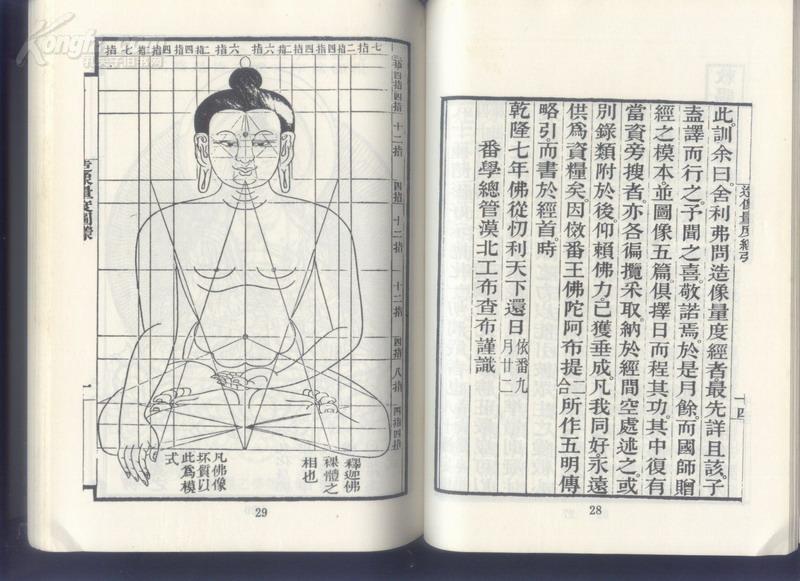 造像量度經引
十四
此訓余曰。舍利弗問造像量度經者最先詳且該。子
盍譯而行之。予聞之喜。敬諾焉。於是月餘。而國師贈
經之模本並圖像五篇俱。擇日而程其功。其中復有
當資旁搜者。亦各徧攬采取。納於經間空處述之。或
別錄類附於後。仰賴佛力。已獲垂成。凡我同好。永遠
供爲資糧矣。因倣番王佛陀阿布提二合所作五明傳
略引而書於經首。時
乾隆七年佛從忉利天下還日依番九月廿二
番學總管漠北工布查布謹識
28
七指 四指 四指 二指 六指 六指 二指 四指 四指 七指
四指
四指
十二指
四指
十二指
十二指
四指
八指
四指
四指
釋迦佛
裸體之
相也
凡佛像
坯質以
此爲模
式
29
Kongfz.com
孔夫子旧书网